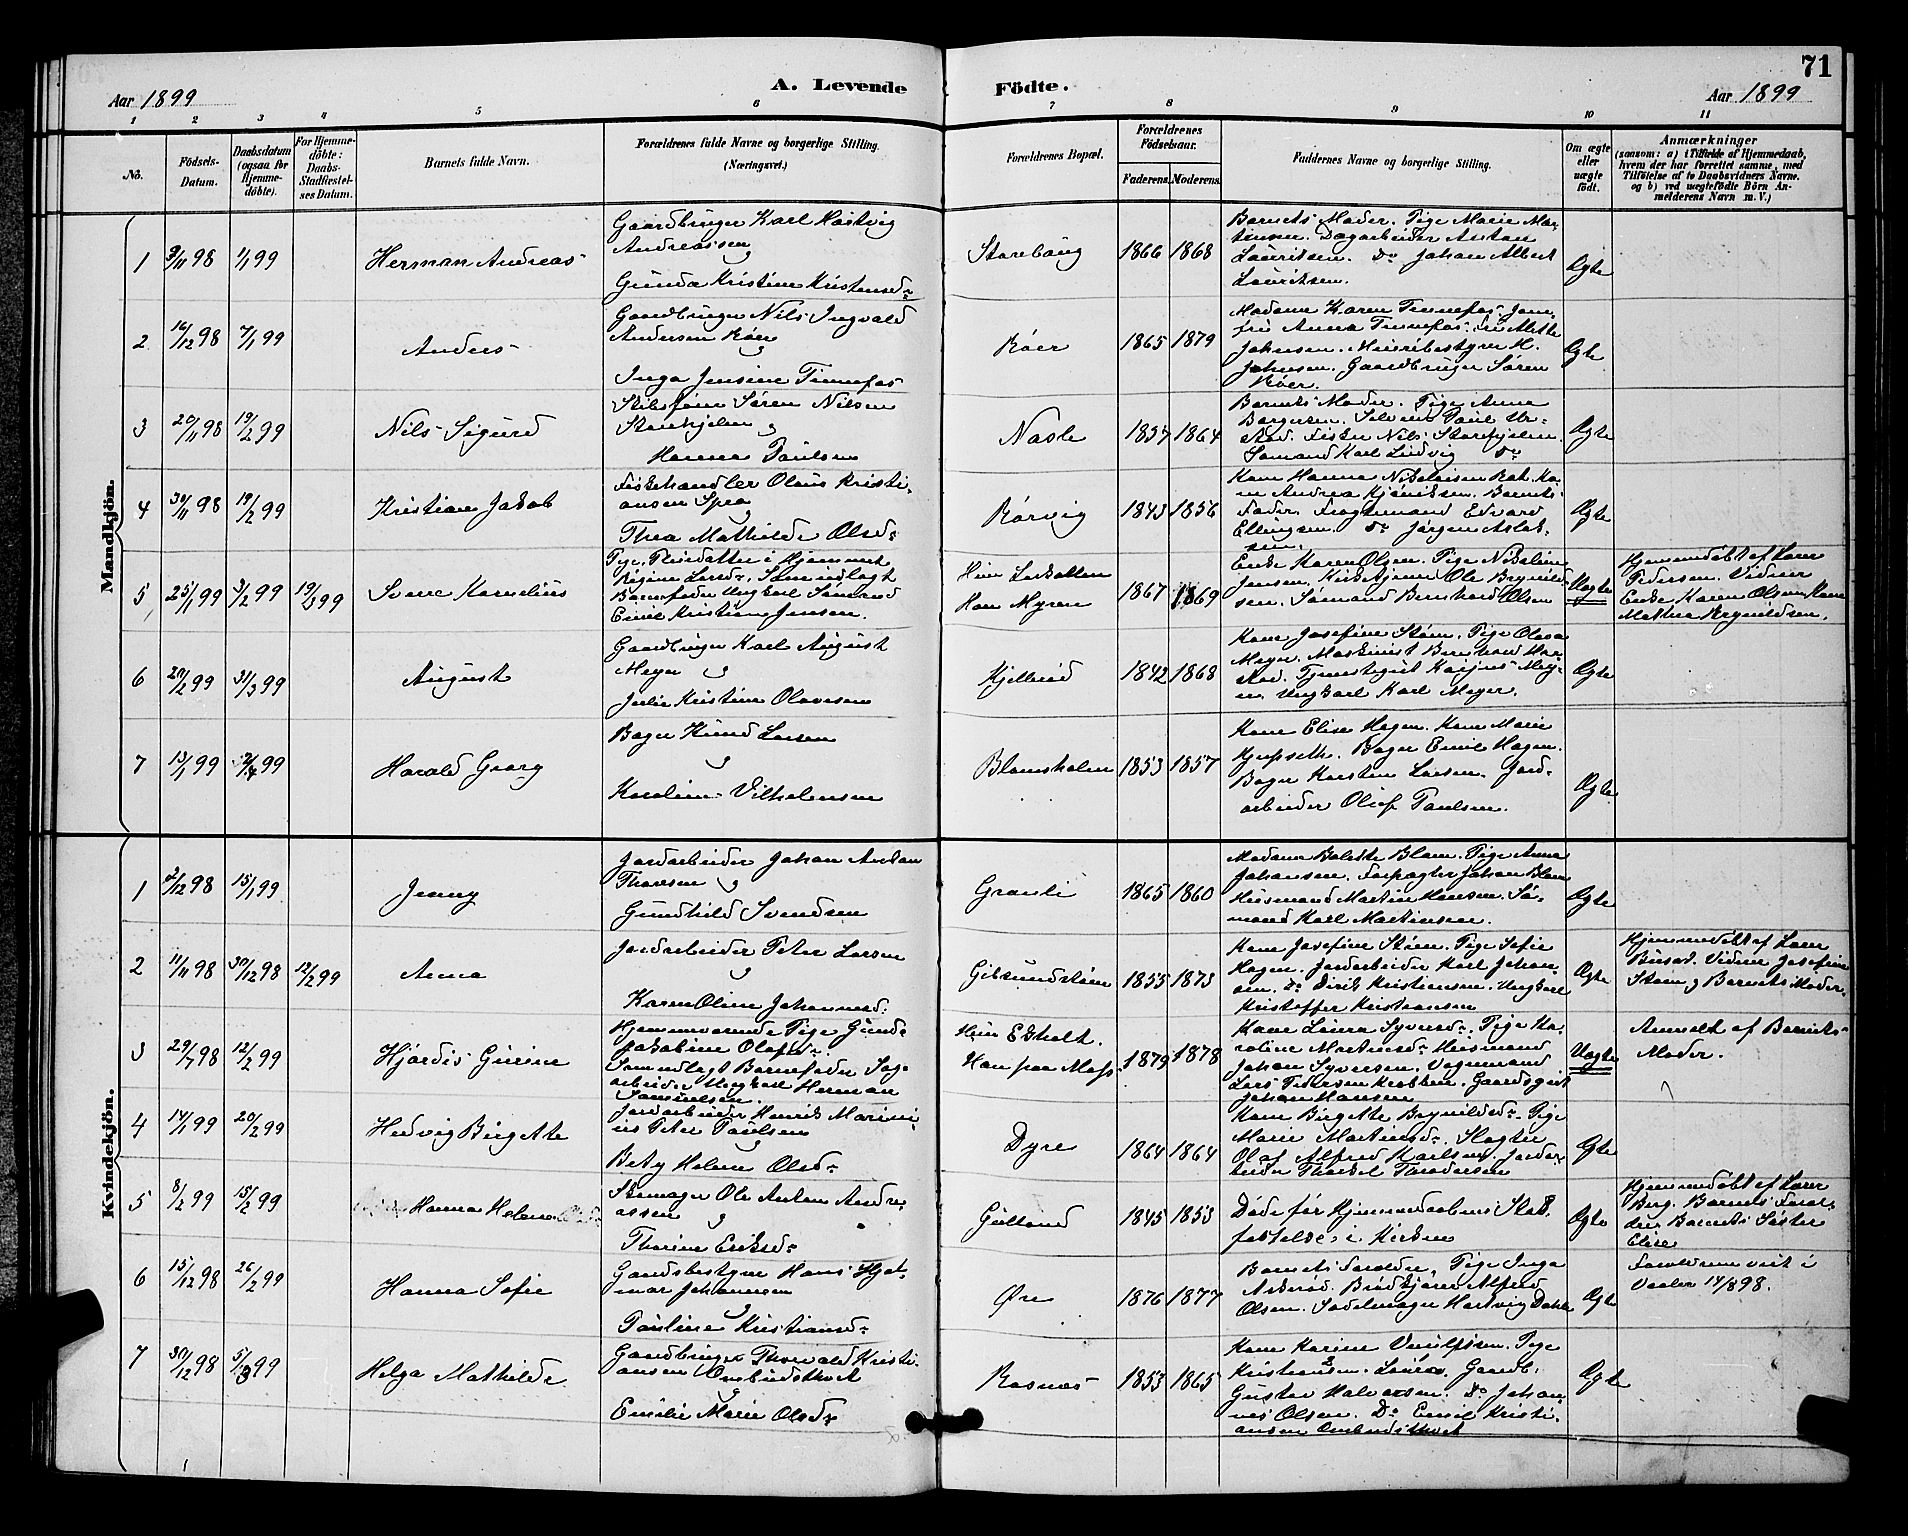 71
Aar 1899
A. Levende
Födte.
Aar 1899
1 2 3 4 5 6 7 8 9 10 11
No.
Födsels-
Datum.
Daabsdatum
(ogsaa for
Hjemme-
döbte).
For Hjemme-
döbte:
Daabs-
Stadfæstel-
ses Datum.
Barnets fulde Navn.
Forældrenes fulde Navne og borgerlige Stilling.
(Næringsvei.)
Forældrenes Bopæl.
Forældrenes
Födselsaar.
Faderens. Moderens.
Faddernes Navne og borgerlige Stilling.
Om ægte
eller
uægte
födt.
Anmærkninger
(saasom: a) i Tilfælde af Hjemmedaab,
hvem der har forrettet samme, med
Tilföielse af to Daabsvidners Navne.
og b) ved uægtefödte Börn An-
melderens Navn m. V.)
Mandkjön.
1 9/11 98 1/1 99 Herman Andreas
Gaardbruger Karl Hartvig
Andreassen
Gunda Kristine Kristensd.
Storebaug 1866 1868
Barnets Moder. Pige Marie Mar-
tinsen. Dagarbeider Anton
Lauritsen. Do Johan Albert
Lauritsen.
Ægte
2 16/12 98 7/1 99 Anders
Gaardbruger Nils Ingvald
Andersen Röer
Inga Jensine Tinnefos
Röer 1865 1879
Madame Karen Tinnefos. Jom-
fru Anna Tinnefos. Fru Mette
Johnsen. Meieribestyrer H.
Johnsen. Gaardbruger Sören
Röer.
Ægte
3 20/11 98 19/2 99 Nils Sigurd
Skibsförer Sören Nilsen
Storehjelen
Hanna Paulsen
Nasle 1857 1864
Barnets Moder. Pige Anna
Borgersen. Paul
Fisker Nils Storehjelen.
Sömand Karl Ludvig do
Ægte
4 30/11 98 19/2 99 Kristian Jakob
Fiskehandler Olaus Kristi-
ansen Spea
Thea Mathilde Olsd.
Rörvig 1843 1856
Kone Hanna Nikolaisen
Andrea Barnets
Fader. Edvard
Ellingsen. do Jörgen Aslak-
sen.
Ægte
5 25/1 99 3/2 99 19/3 99 Sverre Kornelius
Pige, Pleiedatter i Hjemmet
Regine Larsd. Som udlagt
Barnefader Ungkarl Sömand
Emil Kristian Jensen.
Hun
Han Myren
1867 1869
Enke Karen Olsen. Pige Nikoline
Jensen. Kirketjener Ole Brynild-
sen. Sömand Bernhard Olsen
Uægte
Hjemmedöbt af Lærer
Pedersen. Vidner
Enke Karen Olsen, Kone
Mathea Brynildsen.
6 20/2 99 31/3 99 August
Gaardbruger Karl August
Meyer
Julie Kristine Olavesen
Kjelleröd 1842 1868
Kone Josefine Stöen. Pige Olava
Meyer. Maskinist Bernhard
Tjenestegut Mey-
er. Ungkarl Karl Meyer.
Ægte
7 13/1 99 2/4 99 Harald Georg
Bager Knud Larsen
Karoline Vilhelmsen
Blomsholm 1853 1857
Kone Elise Hagen. Kone Marie
Bager Emil Hagen.
Bager Karsten Larsen. Jord-
arbeider Oluf Paulsen.
Ægte
Kvindekjön.
1 2/12 98 15/1 99 Jenny
Jordarbeider Johan Anton
Thoresen
Gundhild Svendsen
Granli 1865 1860
Madame Bolette Blom. Pige Anna
Johansen. Forpagter Johan Blom
Husmand Martin Hansen. Sö-
mand Karl Martinsen.
Ægte
2 11/11 98 30/12 98 12/2 99 Anna
Jordarbeider Peter Larsen
Karen Oline Johannesd.
Gibsundstöen 1855 1873
Kone Josefine Stöen. Pige Sofie
Hagen. Jordarbeider Karl Johan-
sen. Do Dirik Kristiansen. Ungkarl
Kristoffer Kristiansen
Ægte
Hjemmedöbt af Lærer
Vidner Josefine
Stöen og Barnets Moder.
3 29/7 98 12/2 99 Hjördis Gurine
Hjemmeværende Pige Gunda
Jakobine Olafsd.
Som udlagt Barnefader Sag-
arbeider Ungkarl Herman
Samuelsen.
Hun Ekholt.
Han paa Moss
1879 1878
Kone Laura Syversd. Pige Ka-
roline Martinsd. Husmand
Johan Syversen. Vognmand
Lars Pedersen Krokken. Gaardsgut
Johan Hansen
Uægte
Anmeldt af Barnets
Moder.
4 14/1 99 20/2 99 Hedvig Birgitte
Jordarbeider Henrik Marini-
us Peter Paulsen
Betzy Helene Olsd.
Dyre 1864 1864
Kone Birgitte Brynildsd. Pige
Marie Martinsd. Slagter
Olaf Alfred Karlsen. Jordar-
beider Thorkel Theodorsen
Ægte
5 8/2 99 15/2 99 Hanna Helene
Skomager Ole Anton Andre-
assen
Thorine Eriksd.
Gulland 1845 1853
Döde för Hjemmedaabens Stad-
fæstelse i Kirken
Ægte
Hjemmedöbt af Lærer
Berg. Barnets Foræl-
dre, Barnets Söster
Elise
6 15/12 98 26/2 99 Hanna Sofie
Gaardsbestyrer Hans Hjal-
mar Johannesen
Pauline Kristiansd.
Öre 1876 1877
Barnets Forældre, Pige Inga
Askeröd. Brödkjörer Alfred
Olsen. Sadelmager Hartvig Dahl
Ægte
Forældrene viet i
Vaaler 14/8 98.
7 30/12 98 5/3 99 Helga Mathilde
Gaardbruger Thorvald Kristi-
ansen Ombudstvet
Emilie Marie Olsd.
Rosnæs 1853 1865
Kone Karine Pige
Kristiansen. Gaardb.
Gustav Halvorsen. Do Johan-
nes Olsen. Do Emil Kristi-
ansen Ombudstvet
Ægte